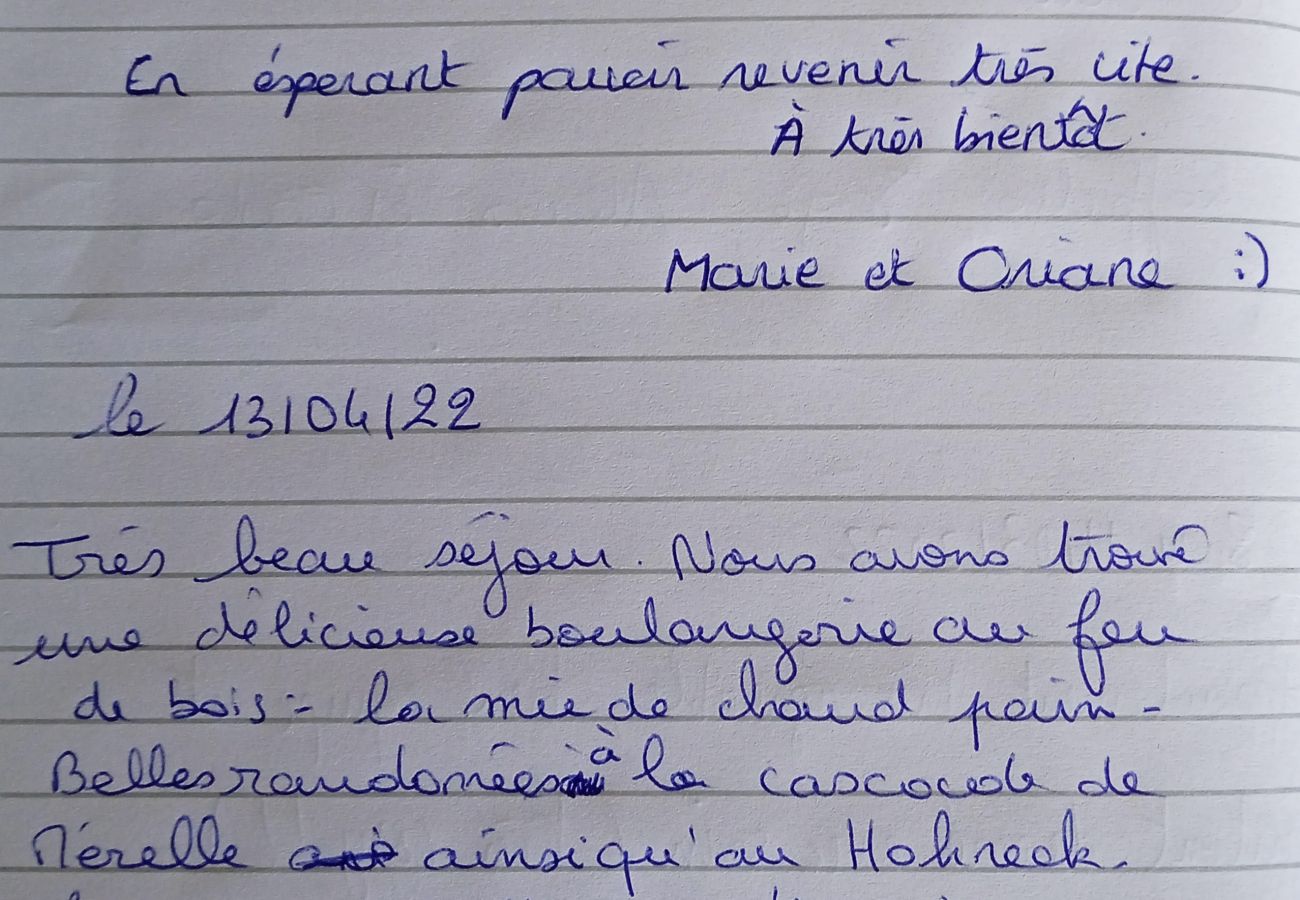 En ésperant pouvoir revenir très vite.
À très bientôt.
Marie et Oriane :)
le 13/04/22
Très beau séjour. Nous avons trouvé
une délicieuse boulangerie au feu
de bois - la mie de chaud pain -
Belles randonées à la cascade de
Mérelle ainsi qu'au Hohneck.